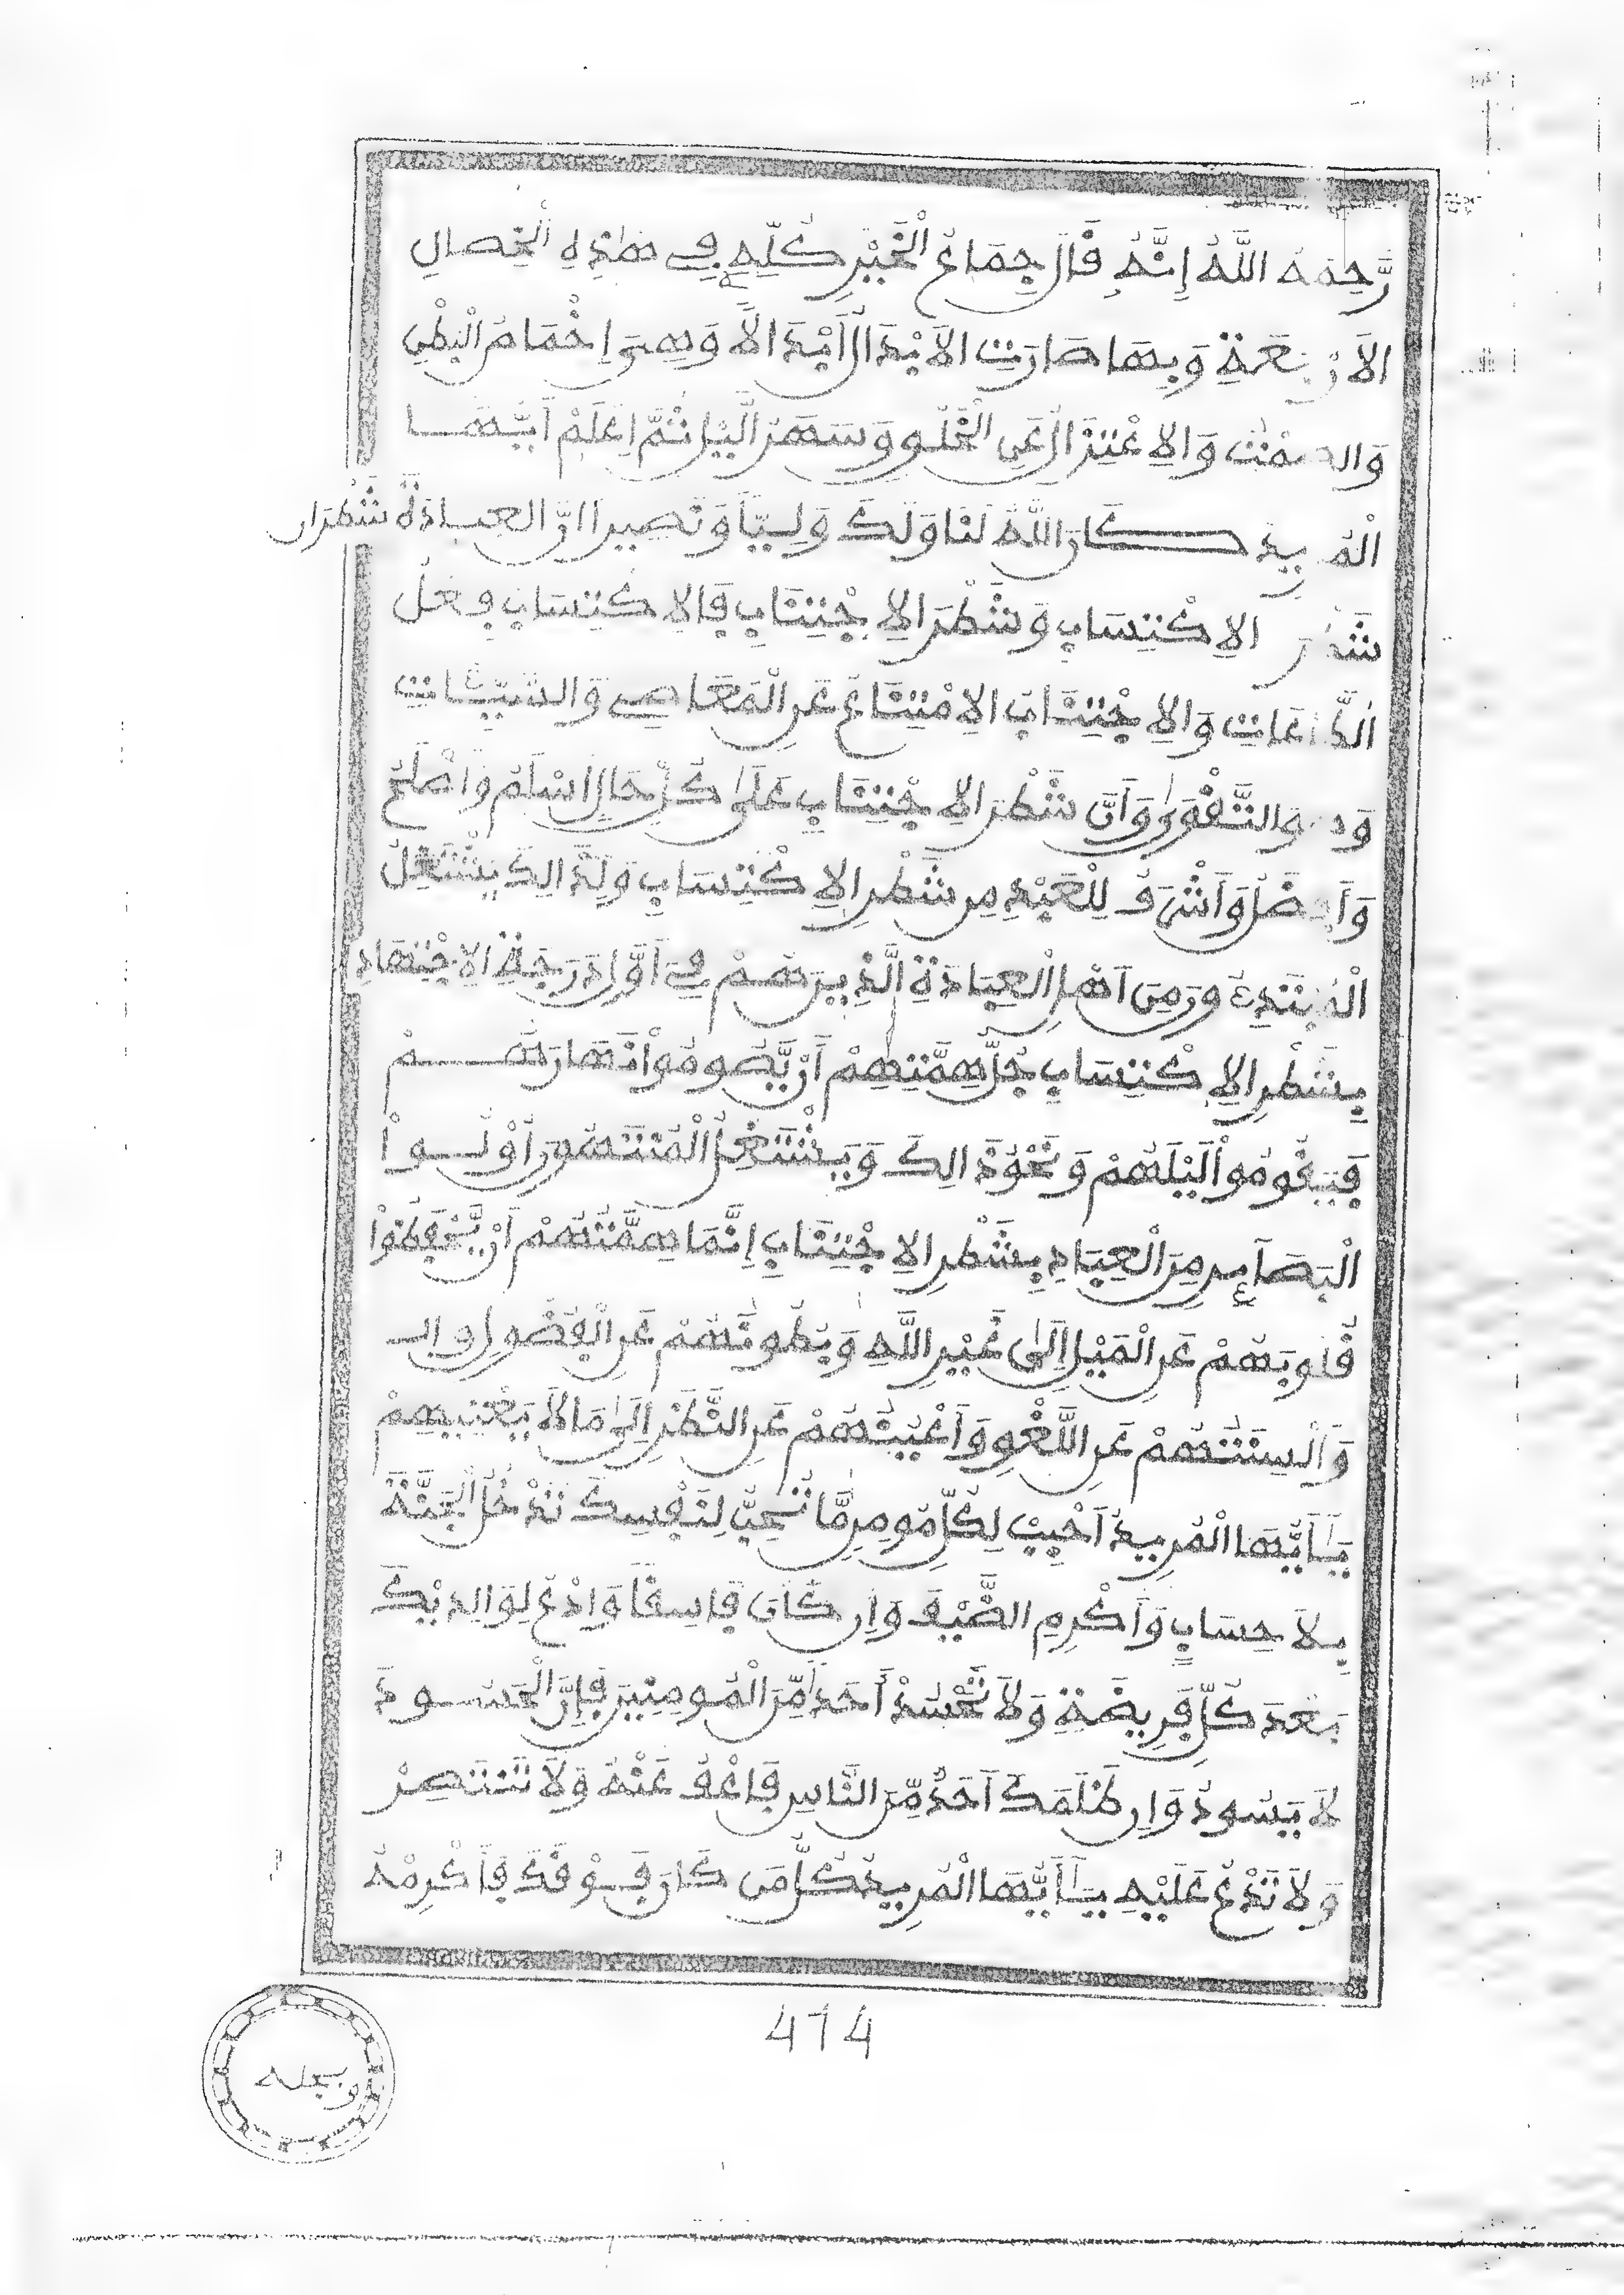 رَّحِمَهُ اللَّهُ إِنَّهُ قَالَ جِمَاعُ الْخَيْرِ كُلِّهِ فِي هَٰذِهِ الْخِصَالِ
الَارْبَعَةِ وَبِهَا صَارَتِ الَابْدَالُ أَبْدَالًا وَهِىَ إِخْمَاصُ الْبَطْنِ
وَالصَّمْتُ وَالِاعْتِزَالُ عَنِ الْخَلْوِ وَسَهَرُ الَّيْلِ ثُمَّ اعْلَمْ أَيُّهَا
الْمُرِيدُ كَانَ اللَّهُ لَنَا وَلَكَ وَلِيّاً وَنَصِيراً انَّ الْعِبَادَةَ شَطْرَانِ
شَطْرُ الِاكْتِسَابِ وَشَطْرُ الِاجْتِنَابِ فَالِاكْتِسَابُ فِعْلُ
الطَّاعَاتِ وَالِاجْتِنَابُ الِامْتِنَاعُ عَنِ الْمَعَاصِي وَالسَّيِّئَاتِ
وَهُوَ التَّقْوَىٰ وَأَنَّ شَطْرَ الِاجْتِنَابِ عَلَىٰ كُلِّ حَالٍ اسْلَمُ وَأَصْلَحُ
وَأَفْضَلُ وَأَشْرَفُ لِلْعَبْدِ مِن شَطْرِ الِاكْتِسَابِ وَلِذَالِكَ يَشْتَغِلُ
الْمُبْتَدِءُونَ مِنَ اَهْلِ الْعِبَادَةِ الَّذِينَ هُمْ فِي أَوَّلِ دَرَجَةِ الِاجْتِهَادِ
بِشَطْرِ الِاكْتِسَابِ جُلُّ هِمَّتِهِمْ أَنْ يَّصُومُواْ نَهَارَهُمْ
فَيَقُومُواْ لَيْلَهُمْ وَنَحْوُ ذَالِكَ وَيَشْتَغِلُ الْمُنْتَهُونَ أُوْلُواْ
الْبَصَآئِرِ مِنَ الْعِبَادِ بِشَطْرِ الِاجْتِنَابِ إِنَّمَا هِمَّتُهُمْ أَنْ يَّحْفَظُواْ
قُلُوبَهُمْ عَنِ الْمَيْلِ إِلَىٰ غَيْرِ اللَّهِ وَبُطُونَهُمْ عَنِ الْفُضُولِ
وَأَلْسِنَتَهُمْ عَنِ اللَّغْوِ وَأَعْيُنَهُمْ عَنِ النَّظَرِ إِلَىٰ مَا لَا يَعْنِيهِمْ
يَٰأَيُّهَا الْمُرِيدُ أَحْبِبْ لِكُلِّ مُومِنٍ مَّا تُحِبُّ لِنَفْسِكَ تَدْخُلِ الْجَنَّةَ
بِلَا حِسَابٍ وَأَكْرِمِ الضَّيْفَ وَإِن كَانَ فَاسِقاً وَادْعُ لِوَالِدَيْكَ
بَعْدَ كُلِّ فَرِيضَةٍ وَلَا تَحْسُدْ أَحَداً مِّنَ الْمُومِنِينَ فَإِنَّ الْحَسُودَ
لَا يَسُودُ وَإِن ظَلَمَكَ أَحَدٌ مِّنَ النَّاسِ فَاعْفُ عَنْهُ وَلَا تَنْتَصِرْ
وَلَا تَدْعُ عَلَيْهِ يَٰأَيُّهَا الْمُرِيدُ كُلُّ مَن كَانَ فَوْقَكَ فَأَكْرِمْهُ
474